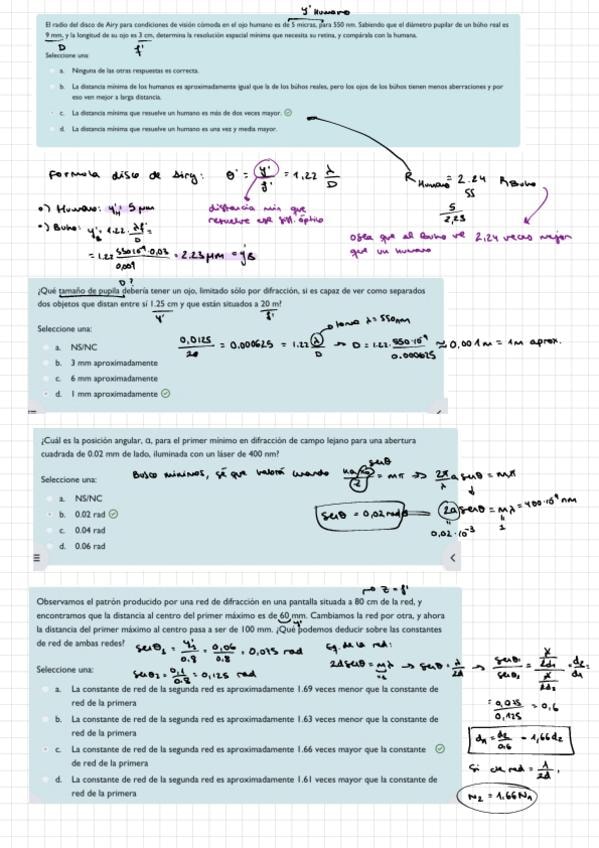 y' Humano
El radio del disco de Airy para condiciones de visión cómoda en el ojo humano es de 5 micras, para 550 nm. Sabiendo que el diámetro pupilar de un búho real es
9 mm, y la longitud de su ojo es 3 cm, determina la resolución espacial mínima que necesita su retina, y compárala con la humana.
D f'
Seleccione una:
a. Ninguna de las otras respuestas es correcta.
b. La distancia mínima de los humanos es aproximadamente igual que la de los búhos reales, pero los ojos de los búhos tienen menos aberraciones y por
eso ven mejor a larga distancia.
c. La distancia mínima que resuelve un humano es más de dos veces mayor.
d. La distancia mínima que resuelve un humano es una vez y media mayor.
Formula disco de Airy: θ' = y'/f' = 1,22 λ/D
R Humano = 2.24 R Buho
5/2,23
distancia min que
resuelve ese sist. óptico
·) Humano: y'H = 5 μm
·) Buho: y'B = 1.22 · λf'/D =
= 1.22 550·10⁻⁹·0,03/0,009 = 2.23 μm = y'B
osea que el Buho ve 2,24 veces mejor
que un humano
D?
¿Qué tamaño de pupila debería tener un ojo, limitado sólo por difracción, si es capaz de ver como separados
dos objetos que distan entre sí 1.25 cm y que están situados a 20 m?
y' f'
Seleccione una:
a. NS/NC
b. 3 mm aproximadamente
c. 6 mm aproximadamente
d. 1 mm aproximadamente
tomo λ = 550nm
0,0125/20 = 0.000625 = 1.22 λ/D → D = 1.22 · 550·10⁻⁹/0.000625 ≈ 0,001 m = 1m aprox.
¿Cuál es la posición angular, α, para el primer mínimo en difracción de campo lejano para una abertura
cuadrada de 0.02 mm de lado, iluminada con un láser de 400 nm?
Seleccione una:
a. NS/NC
b. 0.02 rad
c. 0.04 rad
d. 0.06 rad
senθ
= mπ → 2π/λ a senθ = mπ
2a senθ = mλ = 400·10⁻⁹ nm
0,02·10⁻³ 1
senθ = 0,02 rad
z = f'
Observamos el patrón producido por una red de difracción en una pantalla situada a 80 cm de la red, y
encontramos que la distancia al centro del primer máximo es de 60 mm. Cambiamos la red por otra, y ahora
y'
la distancia del primer máximo al centro pasa a ser de 100 mm. ¿Qué podemos deducir sobre las constantes
de red de ambas redes?
senθ₁ = y'₁/0.8 = 0,06/0.8 = 0,075 rad
senθ₂ = 0,1/0.8 = 0,125 rad
Eq. de la red:
2d senθ = mλ → senθ = λ/2d → senθ₁/senθ₂ = (λ/2d₁)/(λ/2d₂) = d₂/d₁
= 0,075/0,125 = 0,6
d₁ = d₂/0,6 = 1,66d₂
Si cte red = 1/2d,
N₂ = 1.66N₁
Seleccione una:
a. La constante de red de la segunda red es aproximadamente 1.69 veces menor que la constante de
red de la primera
b. La constante de red de la segunda red es aproximadamente 1.63 veces menor que la constante de
red de la primera
c. La constante de red de la segunda red es aproximadamente 1.66 veces mayor que la constante
de red de la primera
d. La constante de red de la segunda red es aproximadamente 1.61 veces mayor que la constante de
red de la primera